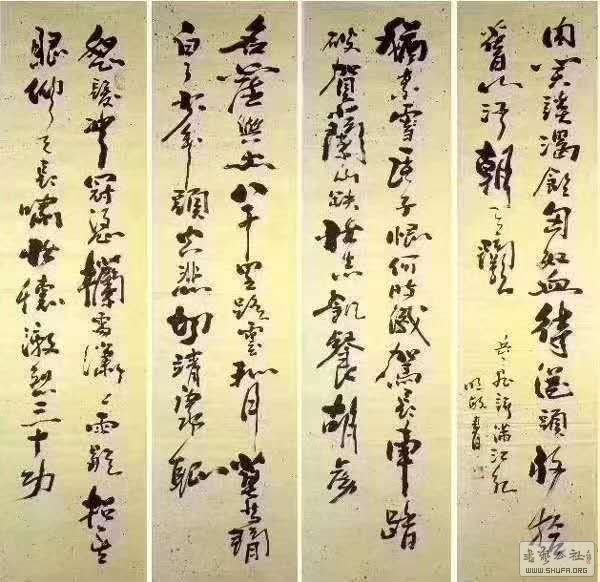 怒髮衝冠憑欄處瀟瀟雨歇抬望
眼仰天長嘯壯懷激烈三十功
名塵與土八千里路雲和月莫等閒
白了少年頭空悲切靖康恥
猶未雪臣子恨何時滅駕長車踏
破賀蘭山缺壯志飢餐胡虜
肉笑談渴飲匈奴血待從頭收拾
舊山河朝天闕
岳飛詞滿江紅
書
WWW.SHUFA.ORG